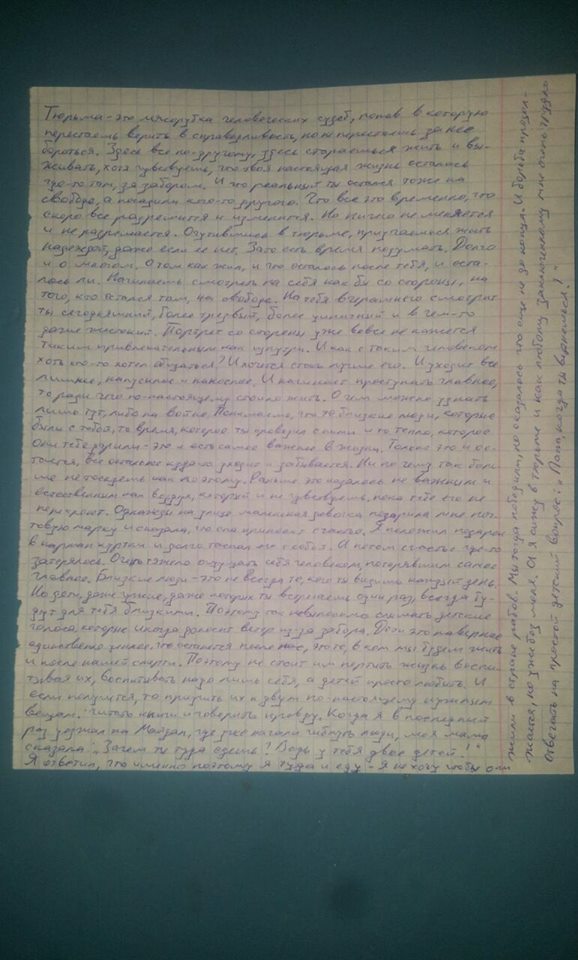 Тюрьма - это мясорубка человеческих судеб, попав в которую
перестаешь верить в справедливость, но не перестаешь за нее
бороться. Здесь все по-другому, здесь стараешься жить и вы-
живать, хотя чувствуешь, что твоя настоящая жизнь осталась
где-то там, за забором. И что реальный ты остался тоже на
свободе, а посадили кого-то другого. Что все это временно, что
скоро все разрешится и изменится. Но ничего не меняется
и не разрешается. Очутившись в тюрьме, приучаешься жить
надеждой, даже если ее нет. Зато есть время подумать. Долго
и о многом. О том как жил, и что осталось после тебя, и оста-
лось ли. Начинаешь смотреть на себя как бы со стороны, на
того, кто остался там, на свободе. На тебя вчерашнего смотрит
ты сегодняшний, более трезвый, более циничный и в чем-то
даже жестокий. Портрет со стороны уже вовсе не кажется
таким привлекательным как изнутри. И как с таким человеком
хоть кто-то хотел общаться? И хочется стать лучше его. И уходит все
лишнее, напускное и наносное. И начинает проступать главное,
то ради чего по-настоящему стоило жить. О чем можно узнать
лишь тут, либо на войне. Понимаешь, что те близкие люди, которые
были с тобой, то время, которое ты проводил с ними и то тепло, которое
они тебе дарили - это и есть самое важное в жизни. Только это и ос-
тается, все остальное куда-то уходит и забывается. Ни по чему так больше
не тоскуешь как по этому. Раньше это казалось не важным и
естественным как воздух, который и не чувствуешь, пока тебе его не
перекроют. Однажды на улице маленькая девочка подарила мне поч-
товую марку и сказала, что она приносит счастье. Я положил подарок
в карман куртки и долго таскал его с собой. И потом счастье где-то
затерялось. Очень тяжело ощущать себя человеком, потерявшим самое
главное. Близкие люди - это не всегда те, кого ты видишь каждый день.
Но дети, даже чужие, даже которых ты встречаешь один раз, всегда бу-
дут для тебя близкими. Поэтому так невыносимо слышать детские
голоса, которые иногда доносит ветер из-за забора. Дети это наверное
единственно ценное что останется после нас, это те, в ком мы будем жить
и после нашей смерти. Поэтому не стоит им портить жизнь воспи-
тывая их, воспитывать надо лишь себя, а детей просто любить. И
если получится, то приучить их к двум по-настоящему нужным
вещам: читать книги и говорить правду. Когда я в последний
раз уезжал на Майдан, где уже начали гибнуть люди, моя мама
сказала: "Зачем ты туда едешь? Ведь у тебя двое детей!"
Я ответил, что именно поэтому я туда и еду - я не хочу чтобы они
жили в стране рабов. Мы тогда победили, но оказалось что еще не до конца. И борьба продол-
жается, но уже без меня. А я сижу в тюрьме и как любому заключенному мне очень трудно
отвечать на простой детский вопрос: "Папа, когда ты вернешься?"